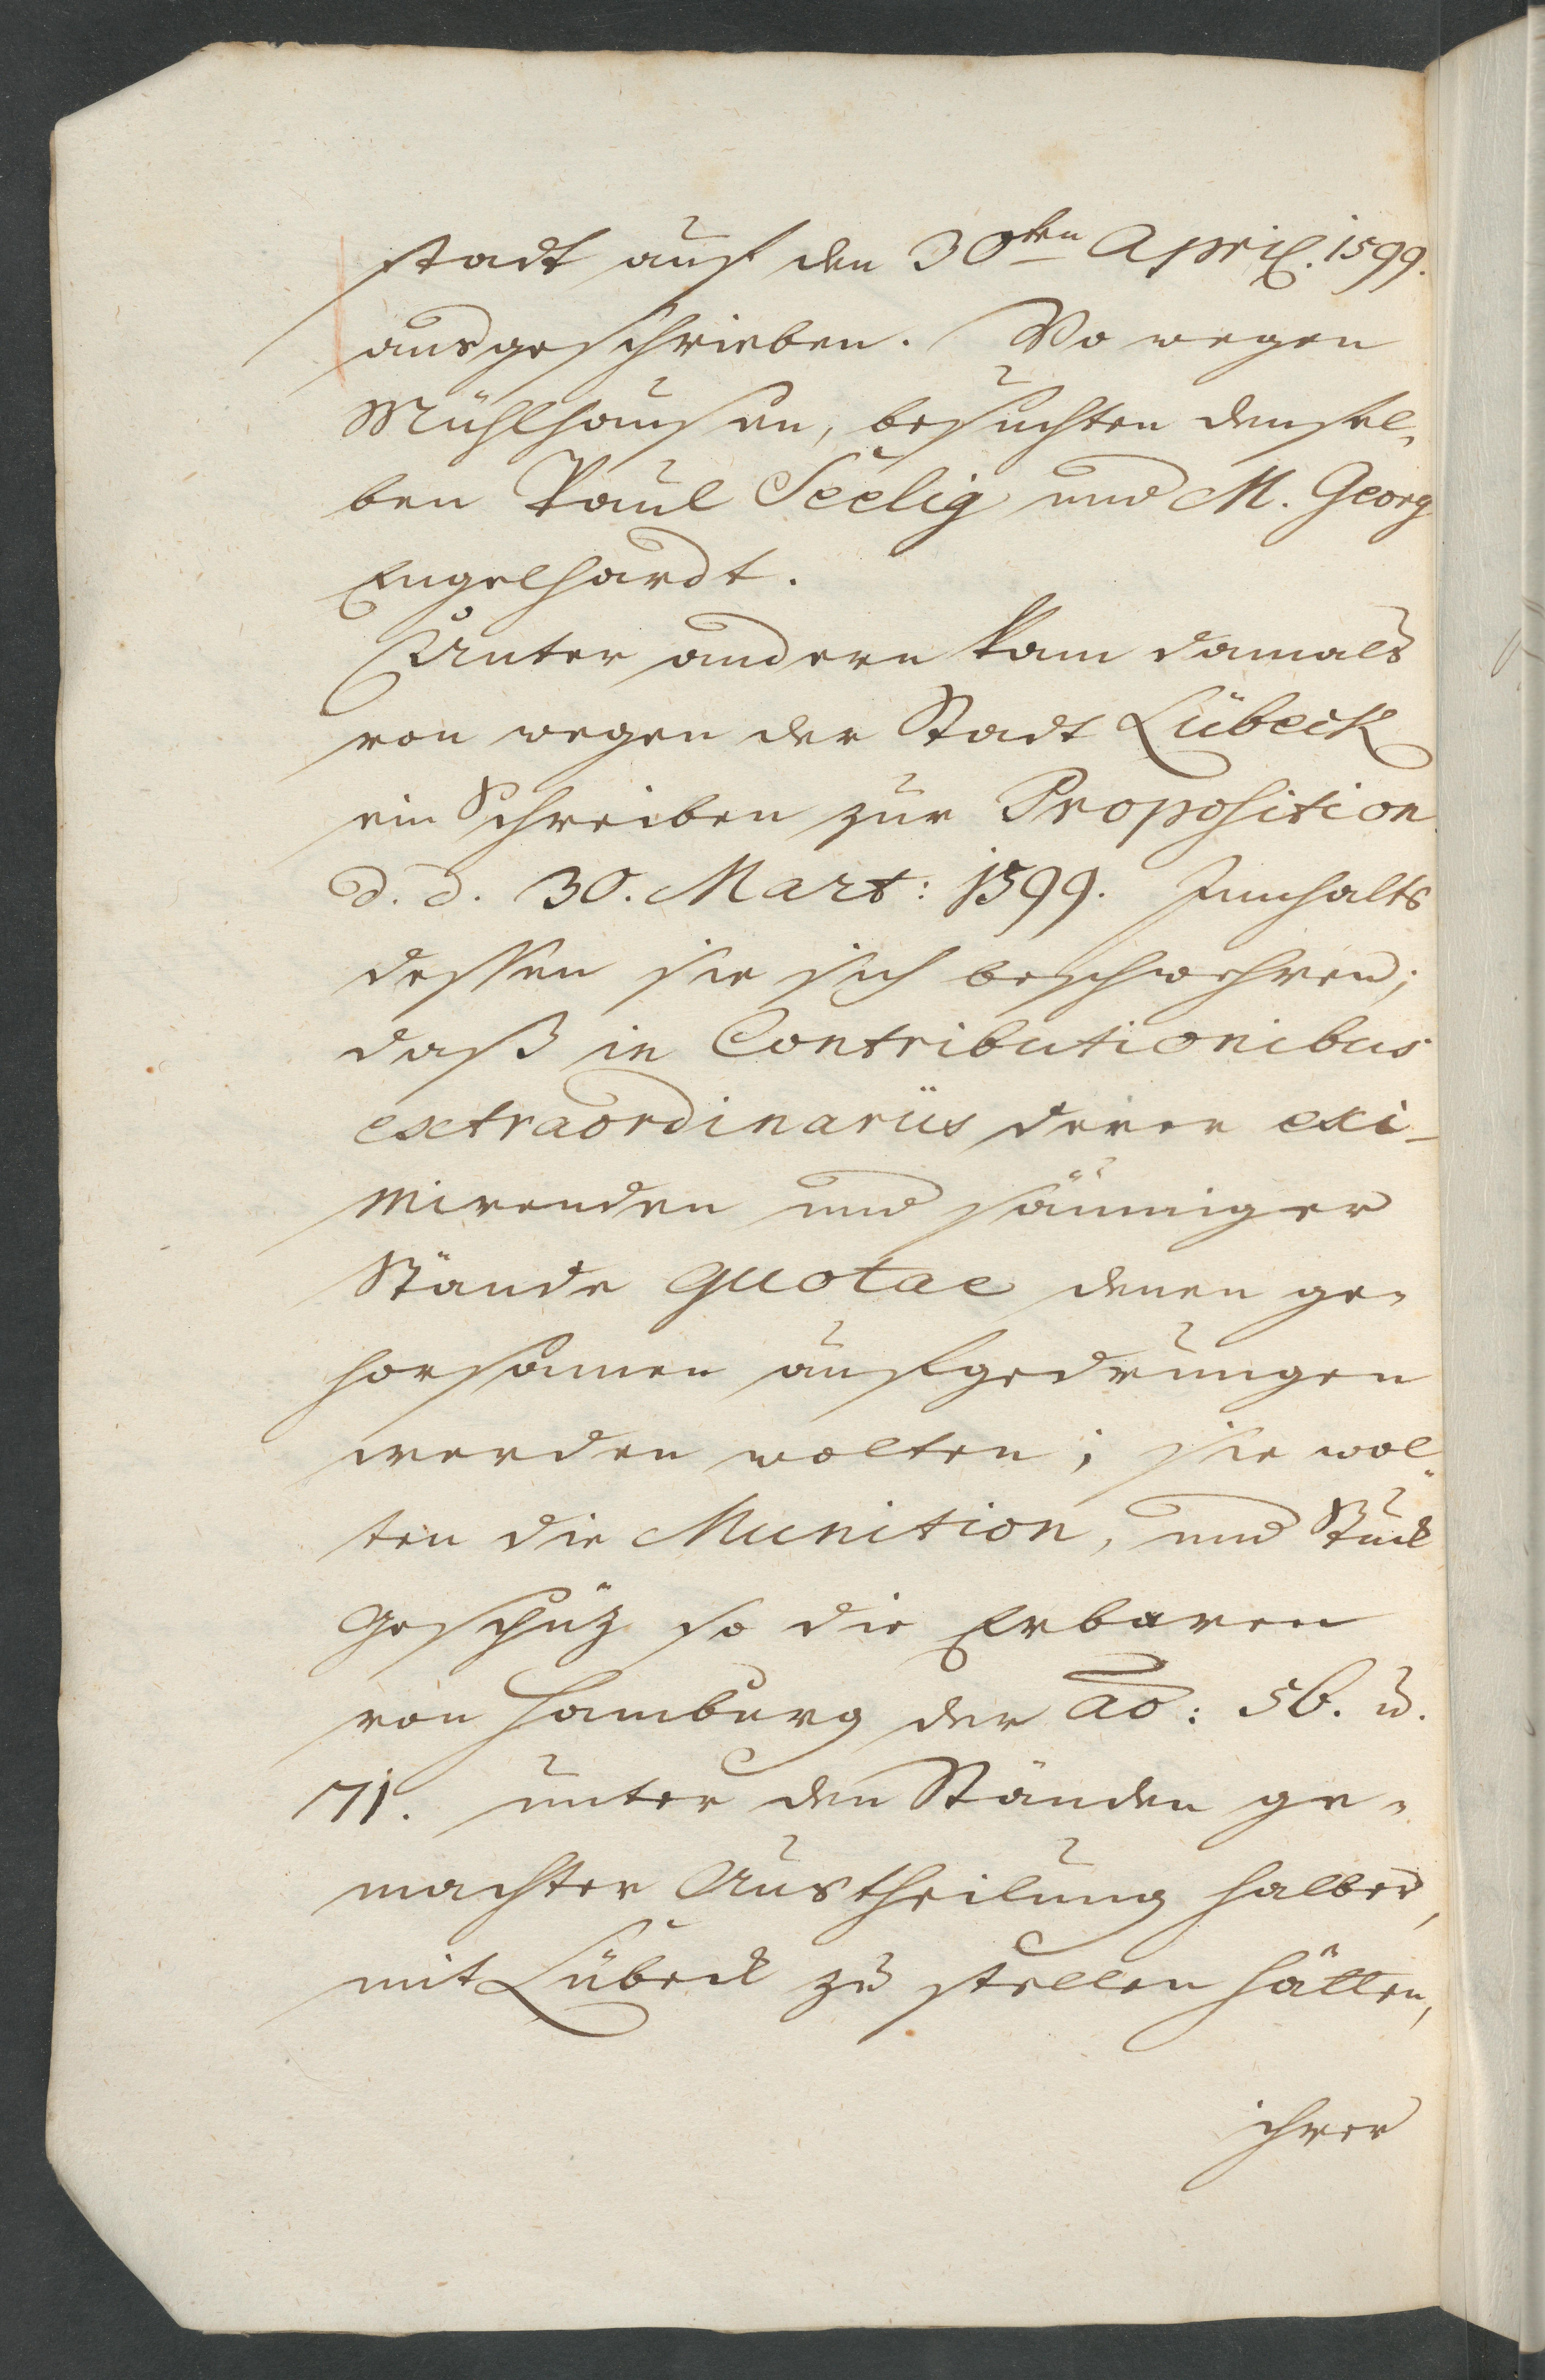 stadt auf den 30ten April. 1599.
ausgeschrieben. Wo wegen
Mühlhausen, besuchten densel„
ben Paul Seelig und M. Georg
Engelhardt.
Unter andern kam damals
von wegen der Stadt Lübeck
ein Schreiben zur Proposition
d. d. 30. Mart: 1599. Innhalts
dessen sie sich beschwehren;
daß in Contributionibus
extraordinariis derer exi-
mirenden und säumiger
Stände quotae denen ge„
horsamen aufgedrungen
werden wolten; sie wol„
ten die Munition, und Stück
Geschüz so die Erbaren
von Hamburg der ao: 56. u.
71. unter den Ständen ge„
machter Austheilung halber,
mit Lübeck zu stellen hätten,
ihrer